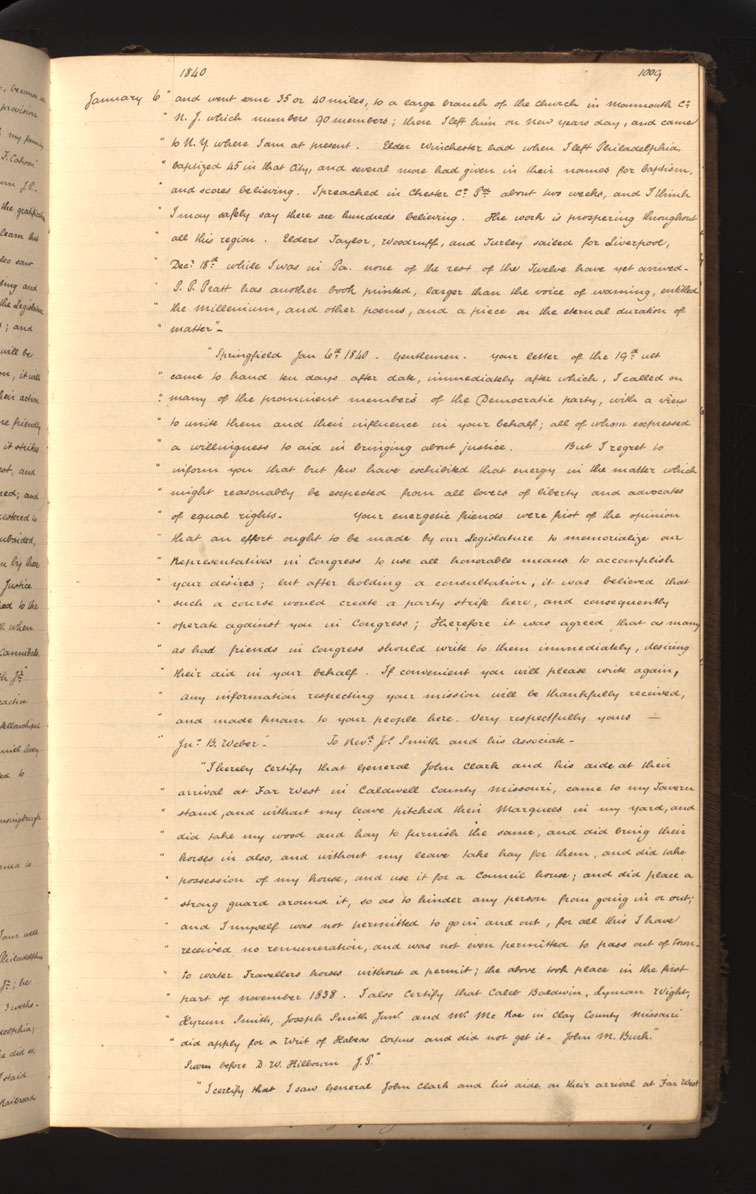 1840 1009
January 6 " and went some 35 or 40 miles, to a large branch of the church in Monmouth Co.
" N. J. which numbers 90 members; there I left him on New years day, and came
" to N. Y. where I am at present. Elder Winchester had when I left Philadelphia,
" baptized 45 in that City, and several more had given in their names for baptism,
" and scores believing. I preached in Chester Co. Pa. about two weeks, and I think
" I may safely say there are hundreds believing. The work is prospering throughout
" all this region. Elders Taylor, Woodruff, and Turley sailed for Liverpool,
" Decr. 18th. while I was in Pa. none of the rest of the Twelve have yet arrived-
" P. P. Pratt has another book printed, larger than the voice of warning, entitled
" the Millenium, and other poems, and a piece on the eternal duration of
" matter"-
"Springfield Jan 6th. 1840. Gentlemen. your letter of the 19th. ult
" came to hand ten days after date, immediately after which, I called on
" many of the prominent members of the Democratic party, with a view
" to unite them and their influence in your behalf; all of whom expressed
" a willingness to aid in bringing about justice. But I regret to
" inform you that but few have exhibited that energy in the matter which
" might reasonably be expected from all lovers of liberty and advocates
" of equal rights- Your energetic friends were first of the opinion
" that an effort ought to be made by our Legislature to memorialize our
" Representatives in Congress to use all honorable means to accomplish
" your desires; but after holding a consultation, it was believed that
" such a course would create a party strife here, and consequently
" operate against you in Congress; Therefore it was agreed that as many
" as had friends in Congress should write to them immediately, desiring
" their aid in your behalf. If convenient you will please write again,
" any information respecting your mission will be thankfully received,
" and made known to your people here. Very respectfully yours —
" Jno. B. Weber"- To Revd. Js. Smith and his associate-
"I hereby certify that General John Clark and his aide at their
" arrival at Far West in Caldwell County Missouri, came to my Tavern
" stand, and without my leave pitched their Marquees in my yard, and
" did take my wood and hay to furnish the same, and did bring their
" horses in also, and without my leave take hay for them, and did take
" possession of my house, and use it for a Council house; and did place a
" strong guard around it, so as to hinder any person from going in or out;
" and I myself was not permitted to go in and out, for all this I have
" received no remuneration, and was not even permitted to pass out of town-
" to water Travellers horses without a permit; the above took place in the first
" part of November 1838. I also certify that Caleb Baldwin, Lyman Wight,
" Hyrum Smith, Joseph Smith Junr. and Mc. Mc Rae in Clay County Missouri
" did apply for a Writ of Habeas Corpus and did not get it- John M. Burk."
Sworn before D. W. Hilbourn J. P."
"I certify that I saw General John Clark and his aide on their arrival at Far West